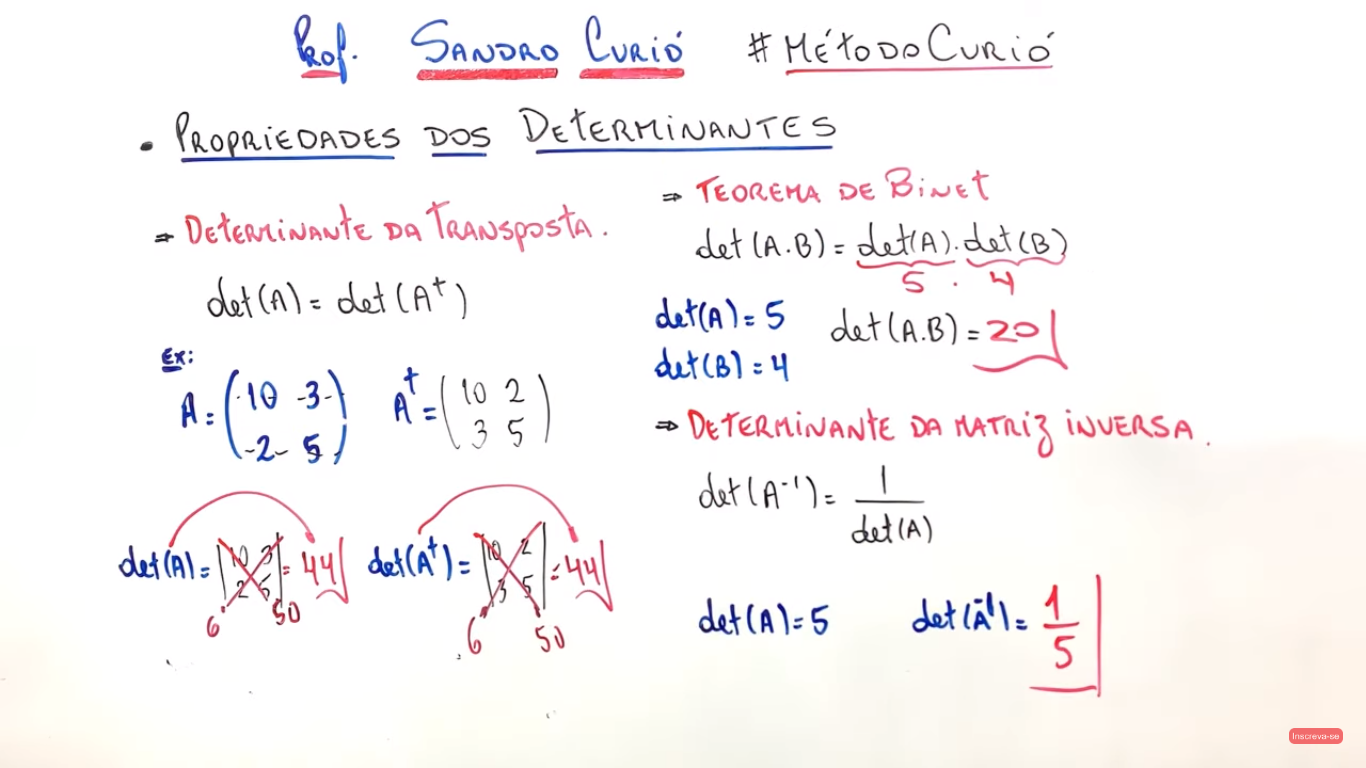 Prof. SANDRO CURIÓ #MÉTODOCURIÓ
• PROPRIEDADES DOS DETERMINANTES
⇒ DETERMINANTE DA TRANSPOSTA.
det(A) = det(A^t)
Ex:
A = (10 3
2 5)
A^t = (10 2
3 5)
det(A) = |10 3
2 5| = 44
6 50
det(A^t) = |10 2
3 5| = 44
6 50
⇒ TEOREMA DE BINET
det(A.B) = det(A).det(B)
5 . 4
det(A) = 5
det(B) = 4
det(A.B) = 20
⇒ DETERMINANTE DA MATRIZ INVERSA.
det(A^-1) = 1/det(A)
det(A) = 5
det(A^-1) = 1/5
Inscreva-se